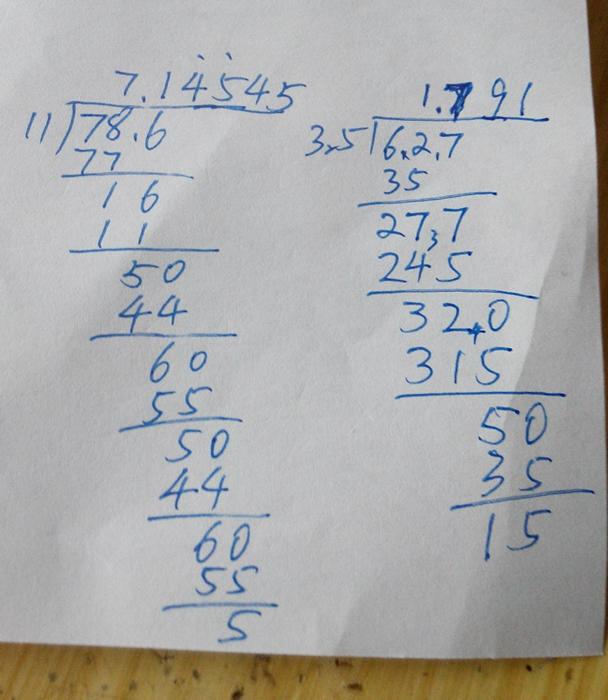 7.14545
11)78.6
77
16
11
50
44
60
55
50
44
60
55
5
1.791
3.5)6.2.7
35
27.7
245
32.0
315
50
35
15